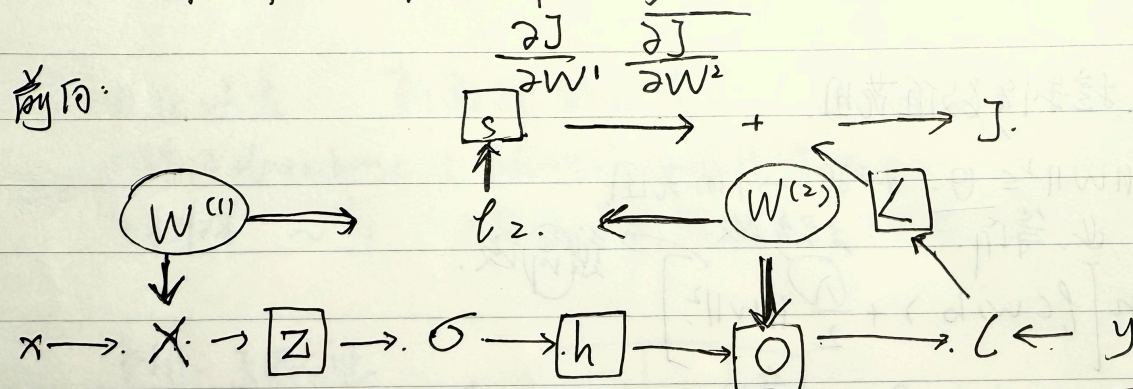 ∂J/∂W¹ ∂J/∂W²
前向:
s → + → J.
W⁽¹⁾ ⇒ l₂. ⇐ W⁽²⁾ L
x → X. → z → σ → h → O → l ← y